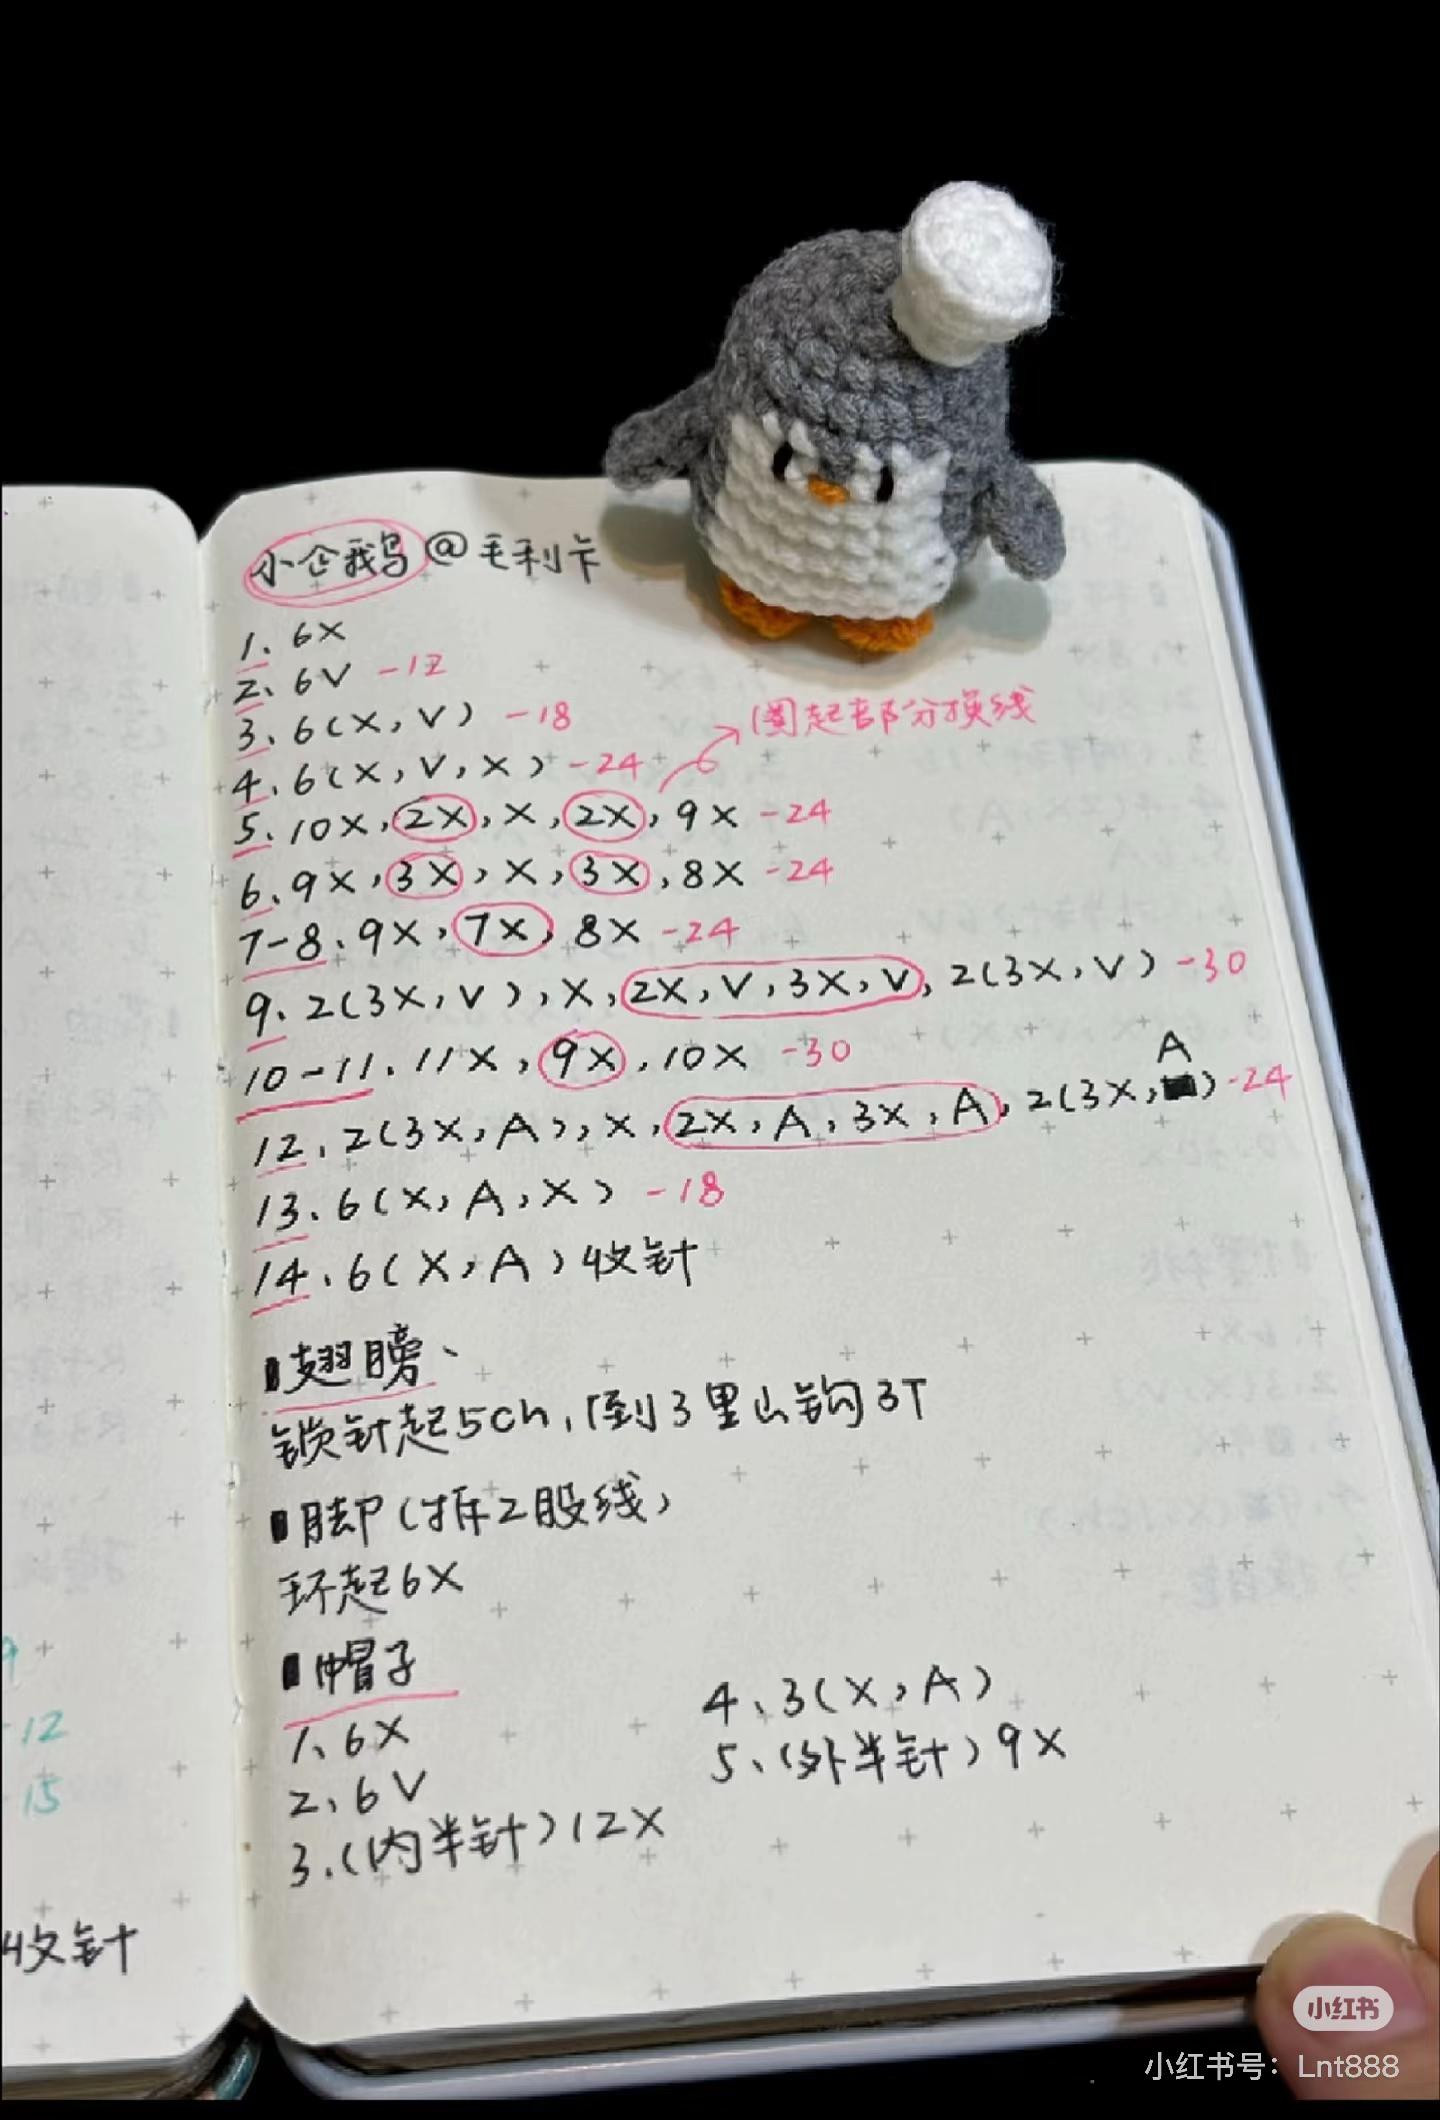 小企鹅@毛利卡
1、6X
2、6V -12
3、6(X,V) -18
圈起部分换线
4、6(X,V,X) -24
5、10X,2X,X,2X,9X -24
6、9X,3X,X,3X,8X -24
7-8、9X,7X,8X -24
9、2(3X,V),X,2X,V,3X,V,2(3X,V) -30
10-11、11X,9X,10X -30
12、2(3X,A),X,2X,A,3X,A,2(3X,A) -24
13、6(X,A,X) -18
14、6(X,A)收针
翅膀、
锁针起5ch,倒3里山钩3T
脚(拆2股线)
环起6X
帽子
1、6X
2、6V
3、(内半针)12X
4、3(X,A)
5、(外半针)9X
9
12
15
收针
小红书
小红书号：Lnt888